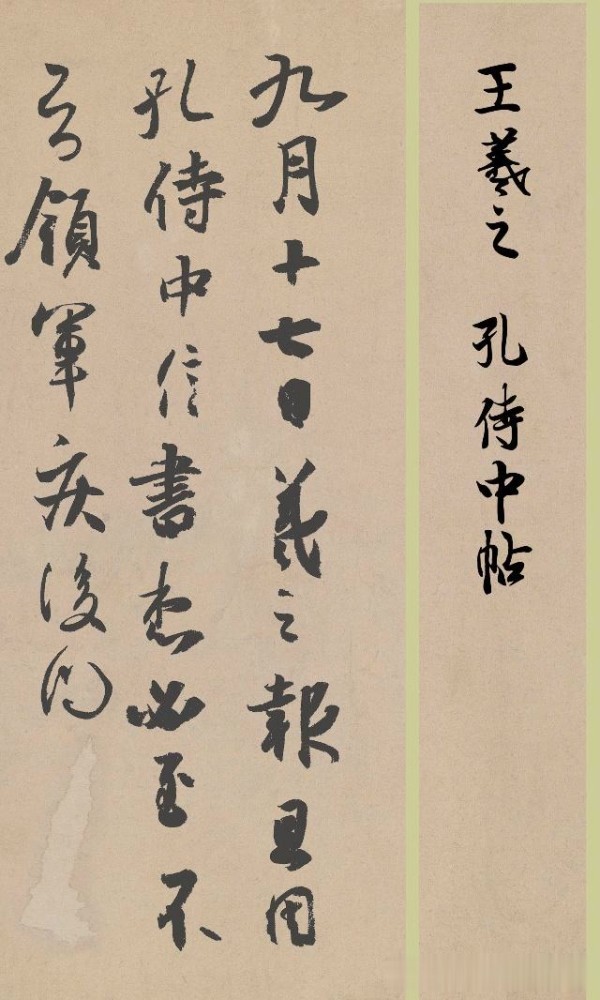 王羲之 孔侍中帖
九月十七日羲之報且因
孔侍中信書想必至不
知領軍疾後問